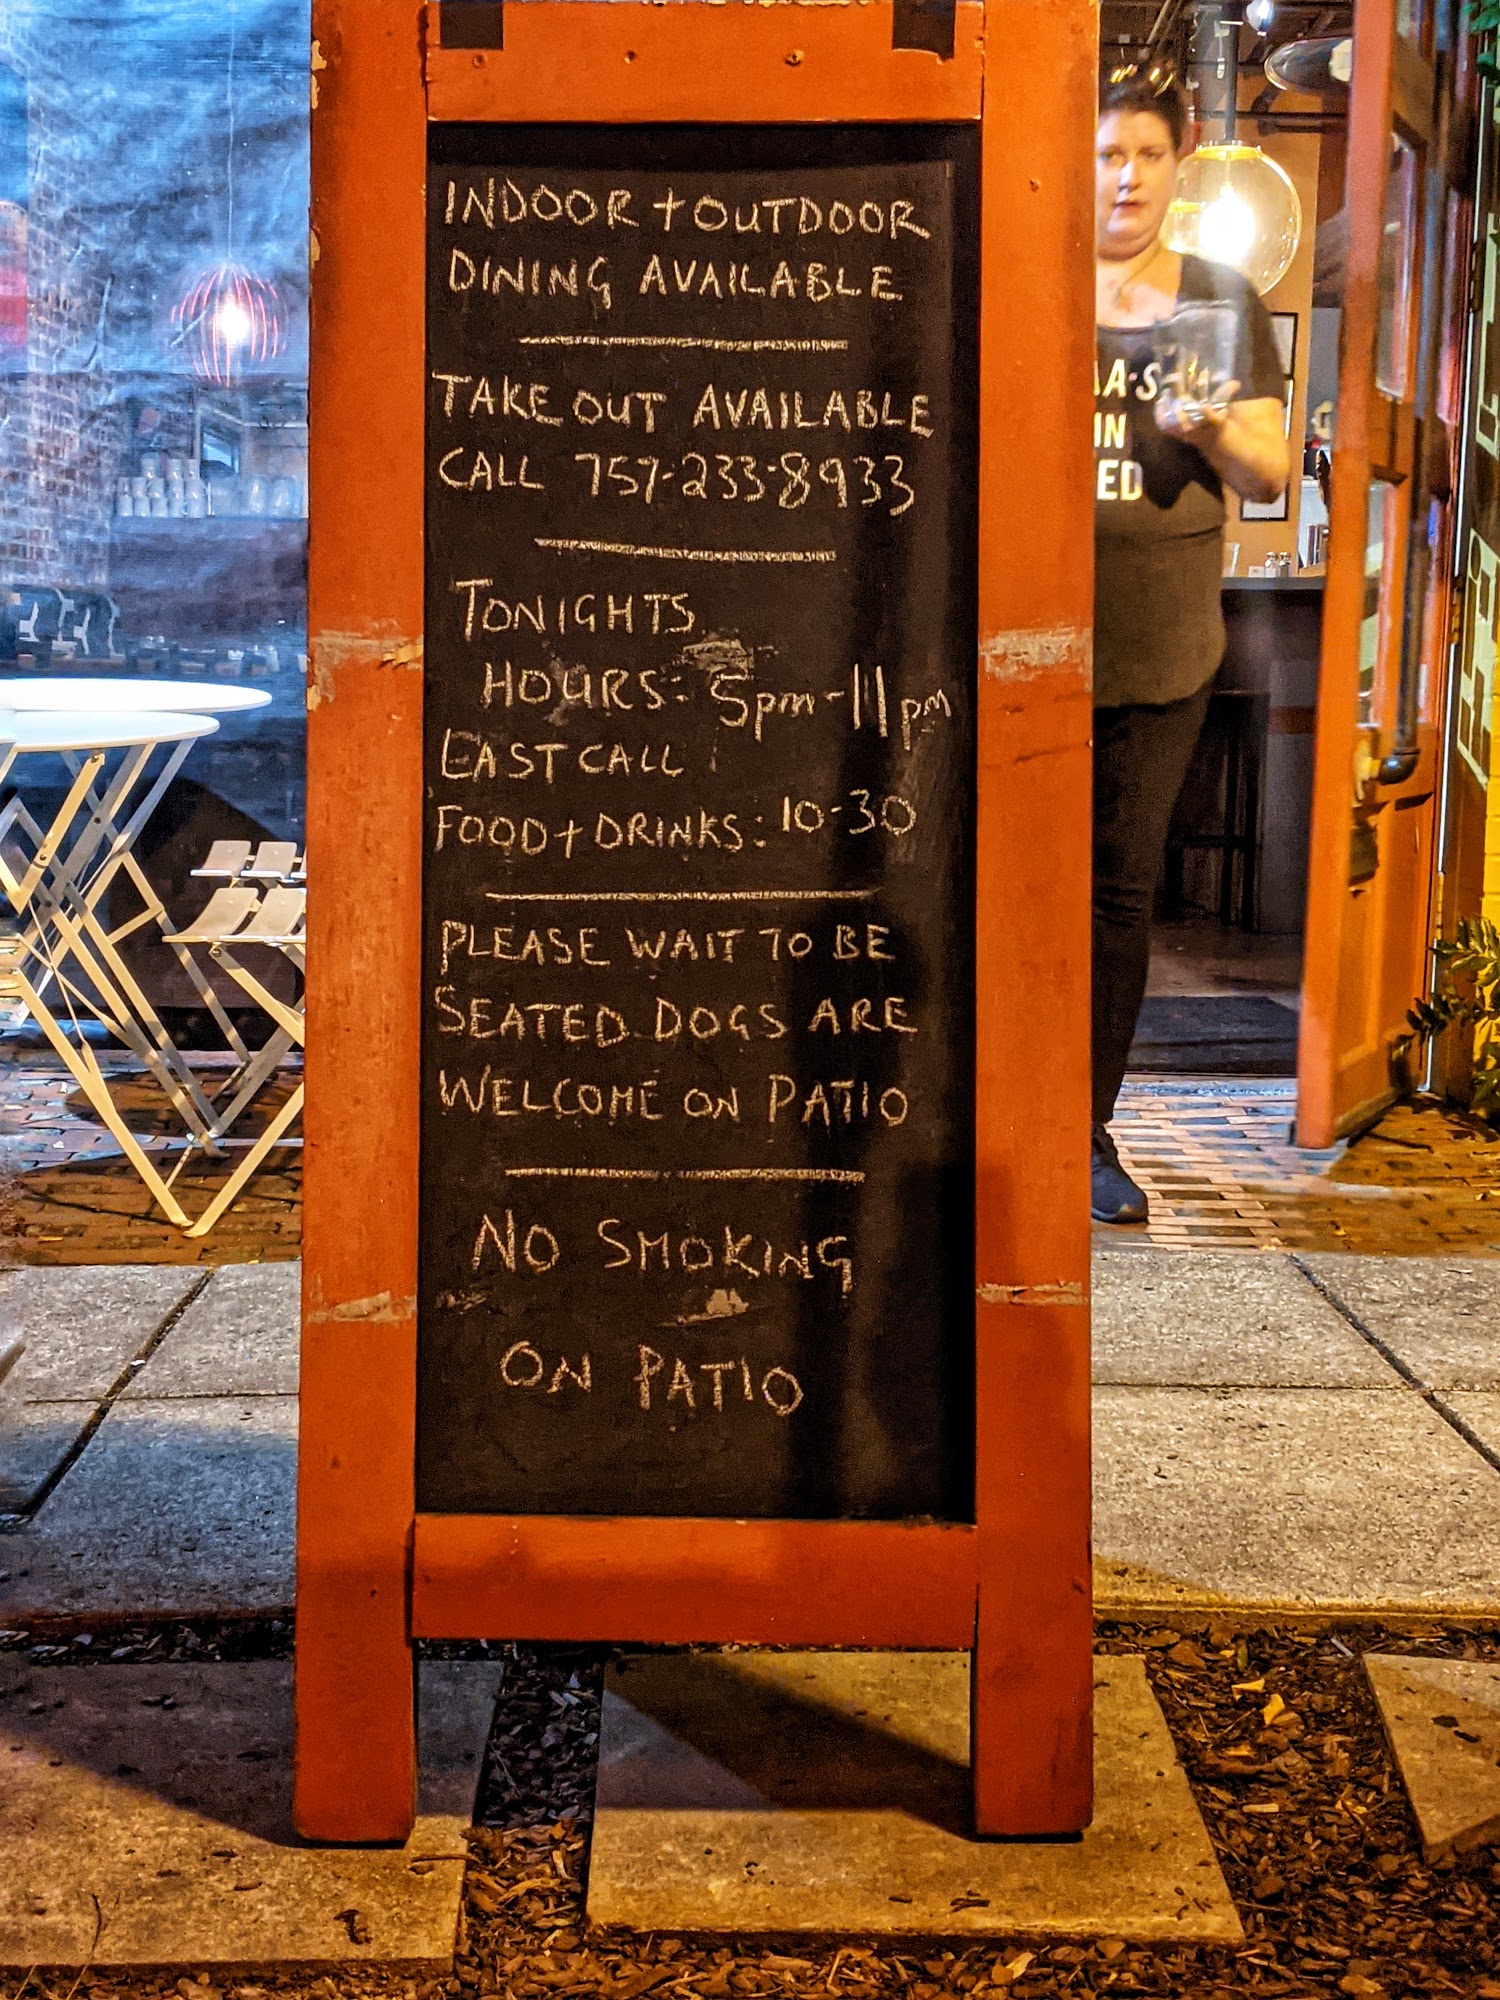 INDOOR + OUTDOOR
DINING AVAILABLE
TAKE OUT AVAILABLE
CALL 757-233-8933
TONIGHTS
HOURS: 5pm-11pm
EAST CALL
FOOD + DRINKS: 10-30
PLEASE WAIT TO BE
SEATED DOGS ARE
WELCOME ON PATIO
NO SMOKING
ON PATIO
IN